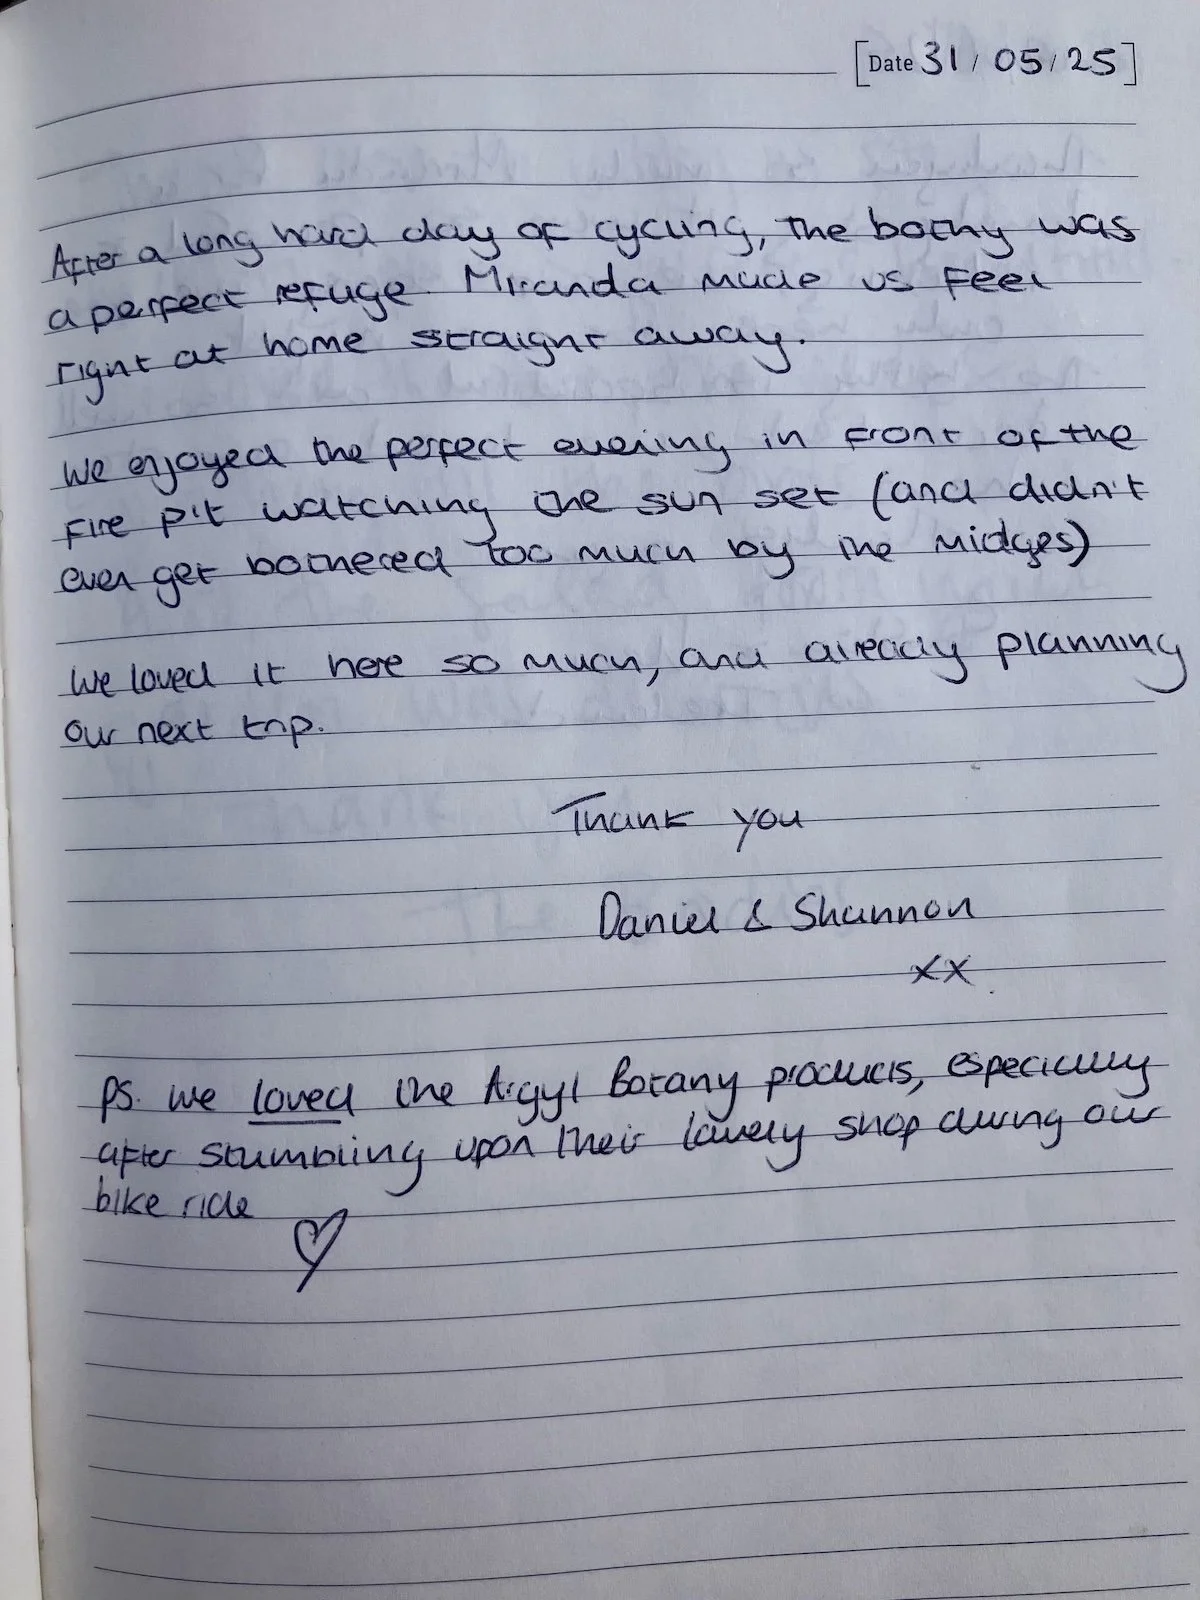 [Date 31 / 05 / 25]
After a long hard day of cycling, the bothy was
a perfect refuge. Miranda made us feel
right at home straight away.
We enjoyed the perfect evening in front of the
fire pit watching the sun set (and didn't
even get bothered too much by the midges)
We loved it here so much, and already planning
our next trip.
Thank you
Daniel & Shannon
xx
PS. we loved the Argyl Botany products, especially
after stumbling upon their lovely shop during our
bike ride